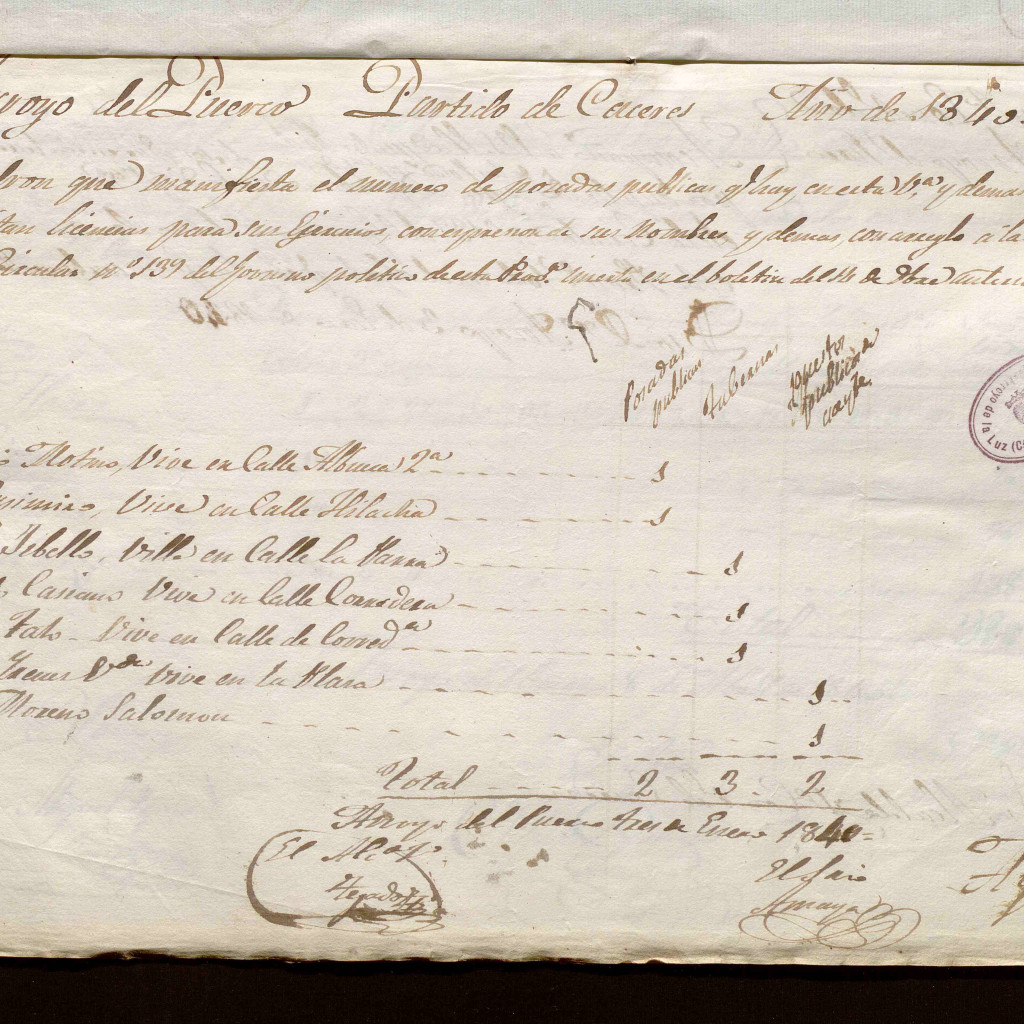 royo del Puerco Partido de Caceres Año de 1840
dron que manifiesta el numero de posadas publicas q.e hay en esta V.a y demas
tan licencias para sus Ejercicios, con expresion de sus Nombres y demas, con arreglo á la
Circular n.o 139 del Govierno politico de esta Prov.a inserto en el boletin del 14 de Dbre
Posadas publicas
Tabernas
Puestos publicos de
Molino, Vive en Calle Albuera 2a 1
Vive en Calle Hilacha 1
en Calle la Parra 1
Casiano Vive en Calle Corredera 1
Vive en Calle de Corred.a 1
V.da Vive en la Plasa 1
Moreno Salomon 1
Total 2 3 2
Arroyo del Puerco tres de Enero 1840=
El Alc.e
El Srio
Amaya
de la Luz